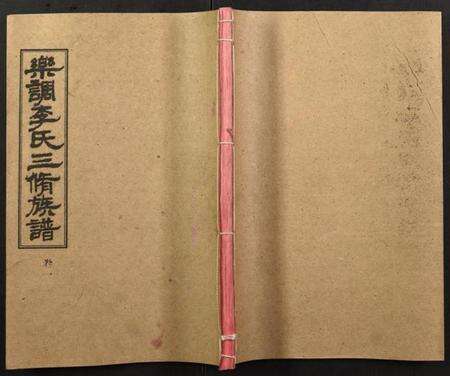 樂調李氏三脩族譜